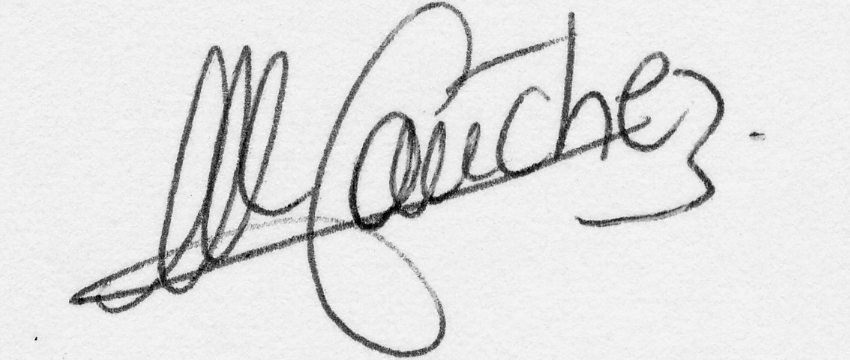 M Sánchez.